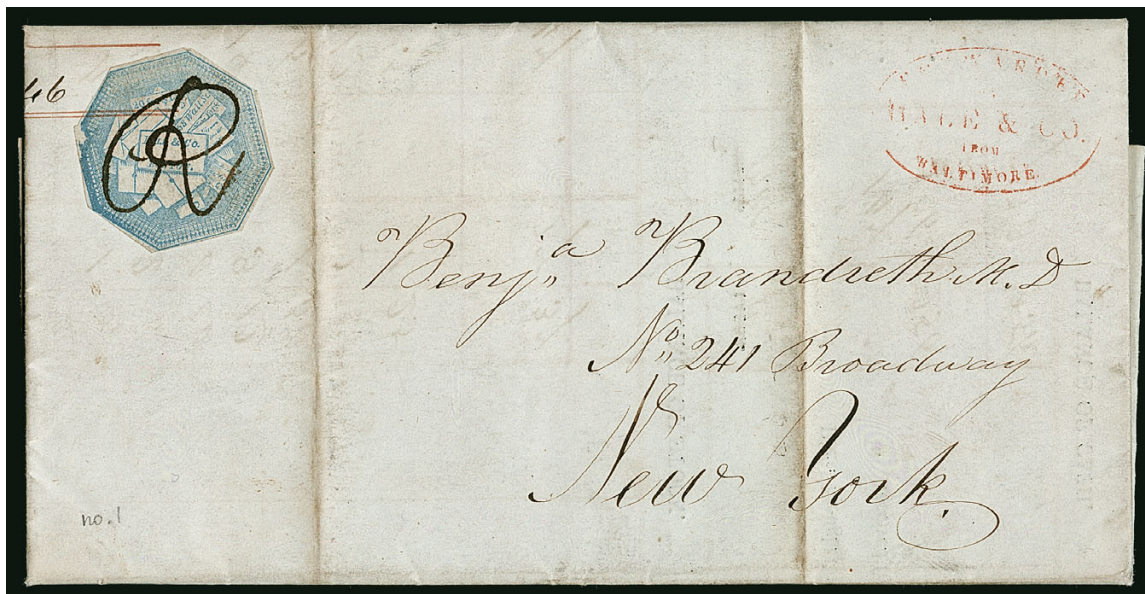 46
& Co.
Wall St
R
FORWARDED
HALE & CO.
FROM
BALTIMORE
Benj,,ᵃ Brandreth M.D
Nº,, 241 Broadway
New York.
no. 1